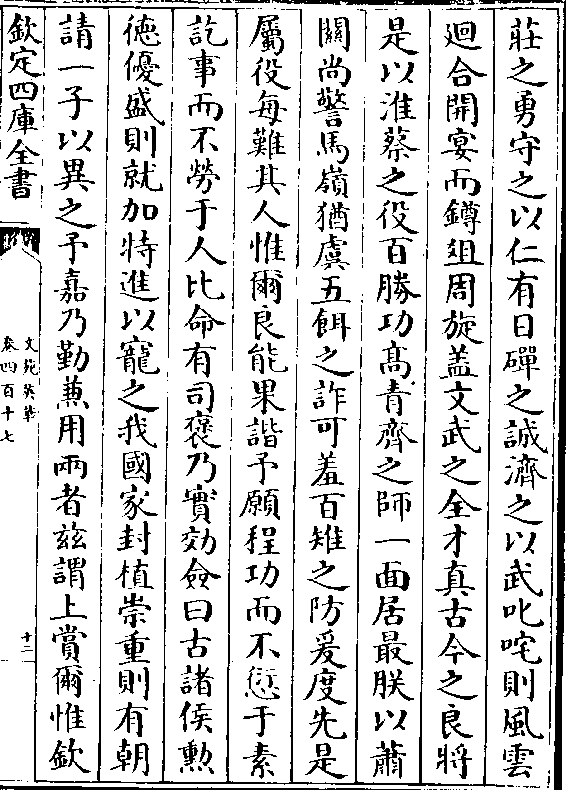 莊之勇守之以仁有日磾之誠濟之以武叱咤則風雲
迴合開宴而鐏俎周旋盖文武之全才真古今之良將
是以淮蔡之役百勝功髙青齊之師一面居最朕以蕭
關尚警馬嶺猶虞五餌之詐可羞百雉之防爰度先是
屬役每難其人惟爾良能果諧予願程功而不愆于素
訖事而不勞于人比命有司褒乃實効僉曰古諸侯勲
徳優盛則就加特進以寵之我國家封植崇重則有朝
請一子以異之予嘉乃勤兼用兩者兹謂上賞爾惟欽
欽定四庫全書
文苑英華
卷四百十七
十二